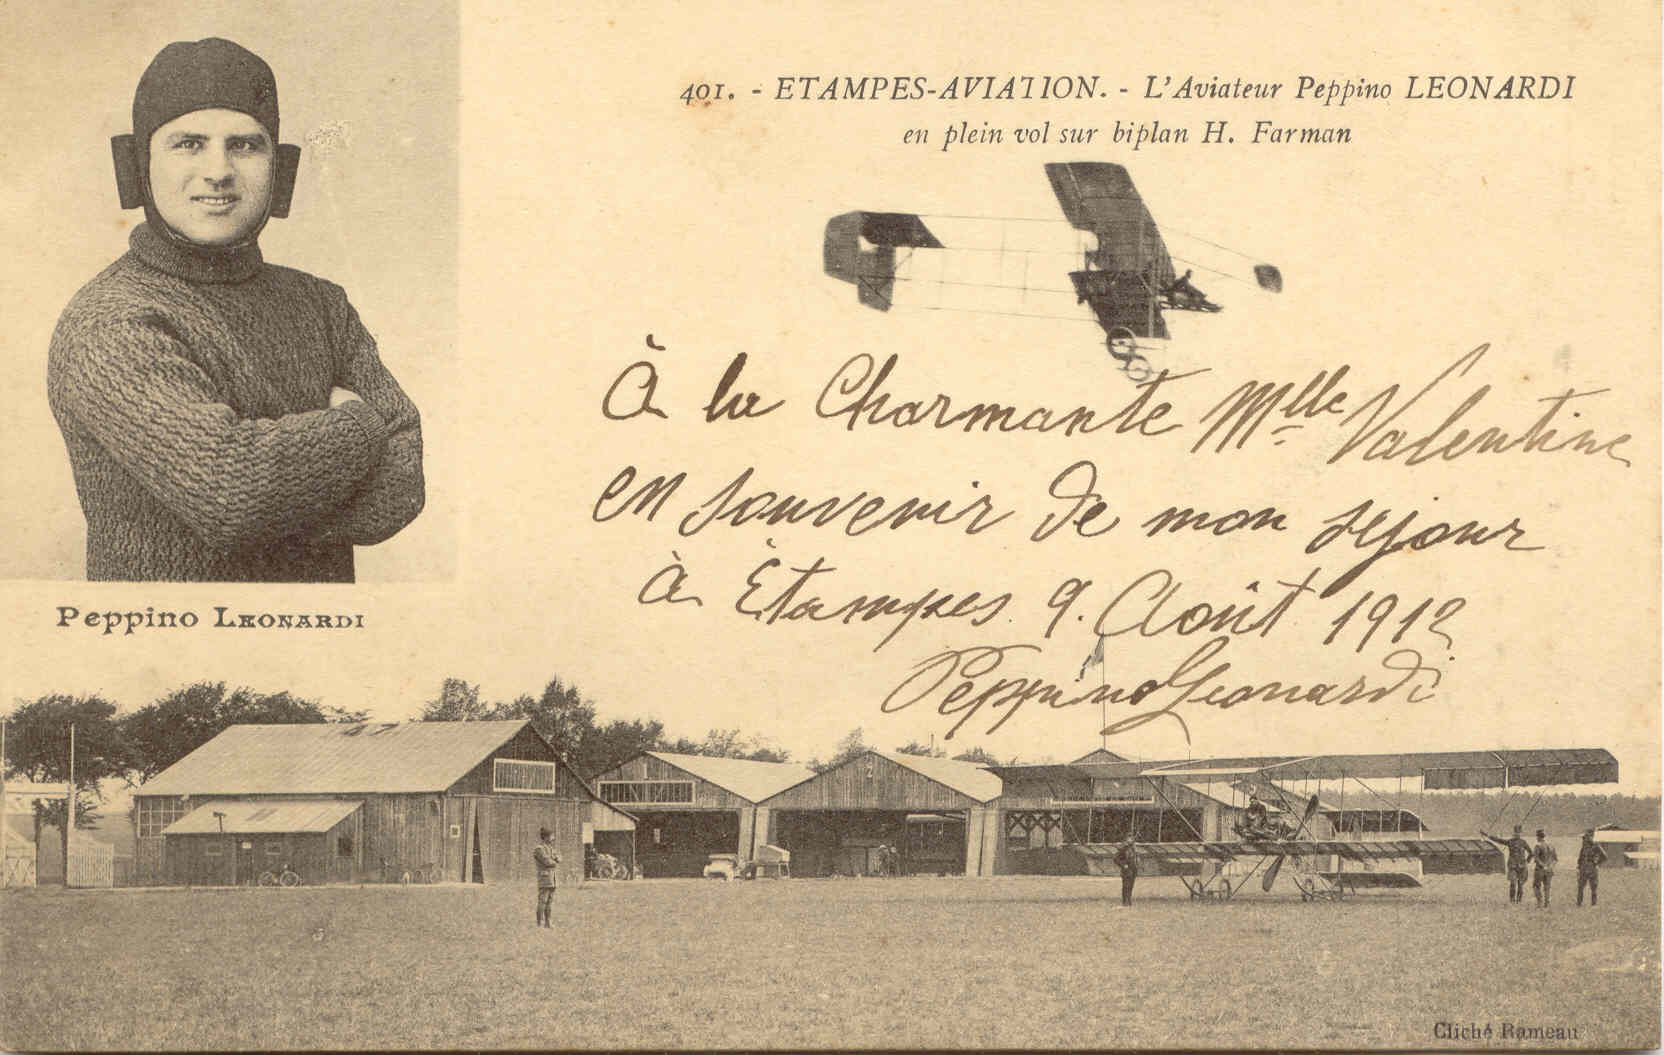 401. - ETAMPES-AVIATION. - L'Aviateur Peppino LEONARDI
en plein vol sur biplan H. Farman
À la Charmante Mlle Valentine
en souvenir de mon séjour
à Étampes 9. Août 1912
Peppino Leonardi
Peppino LEONARDI
1
2
Cliché Rameau